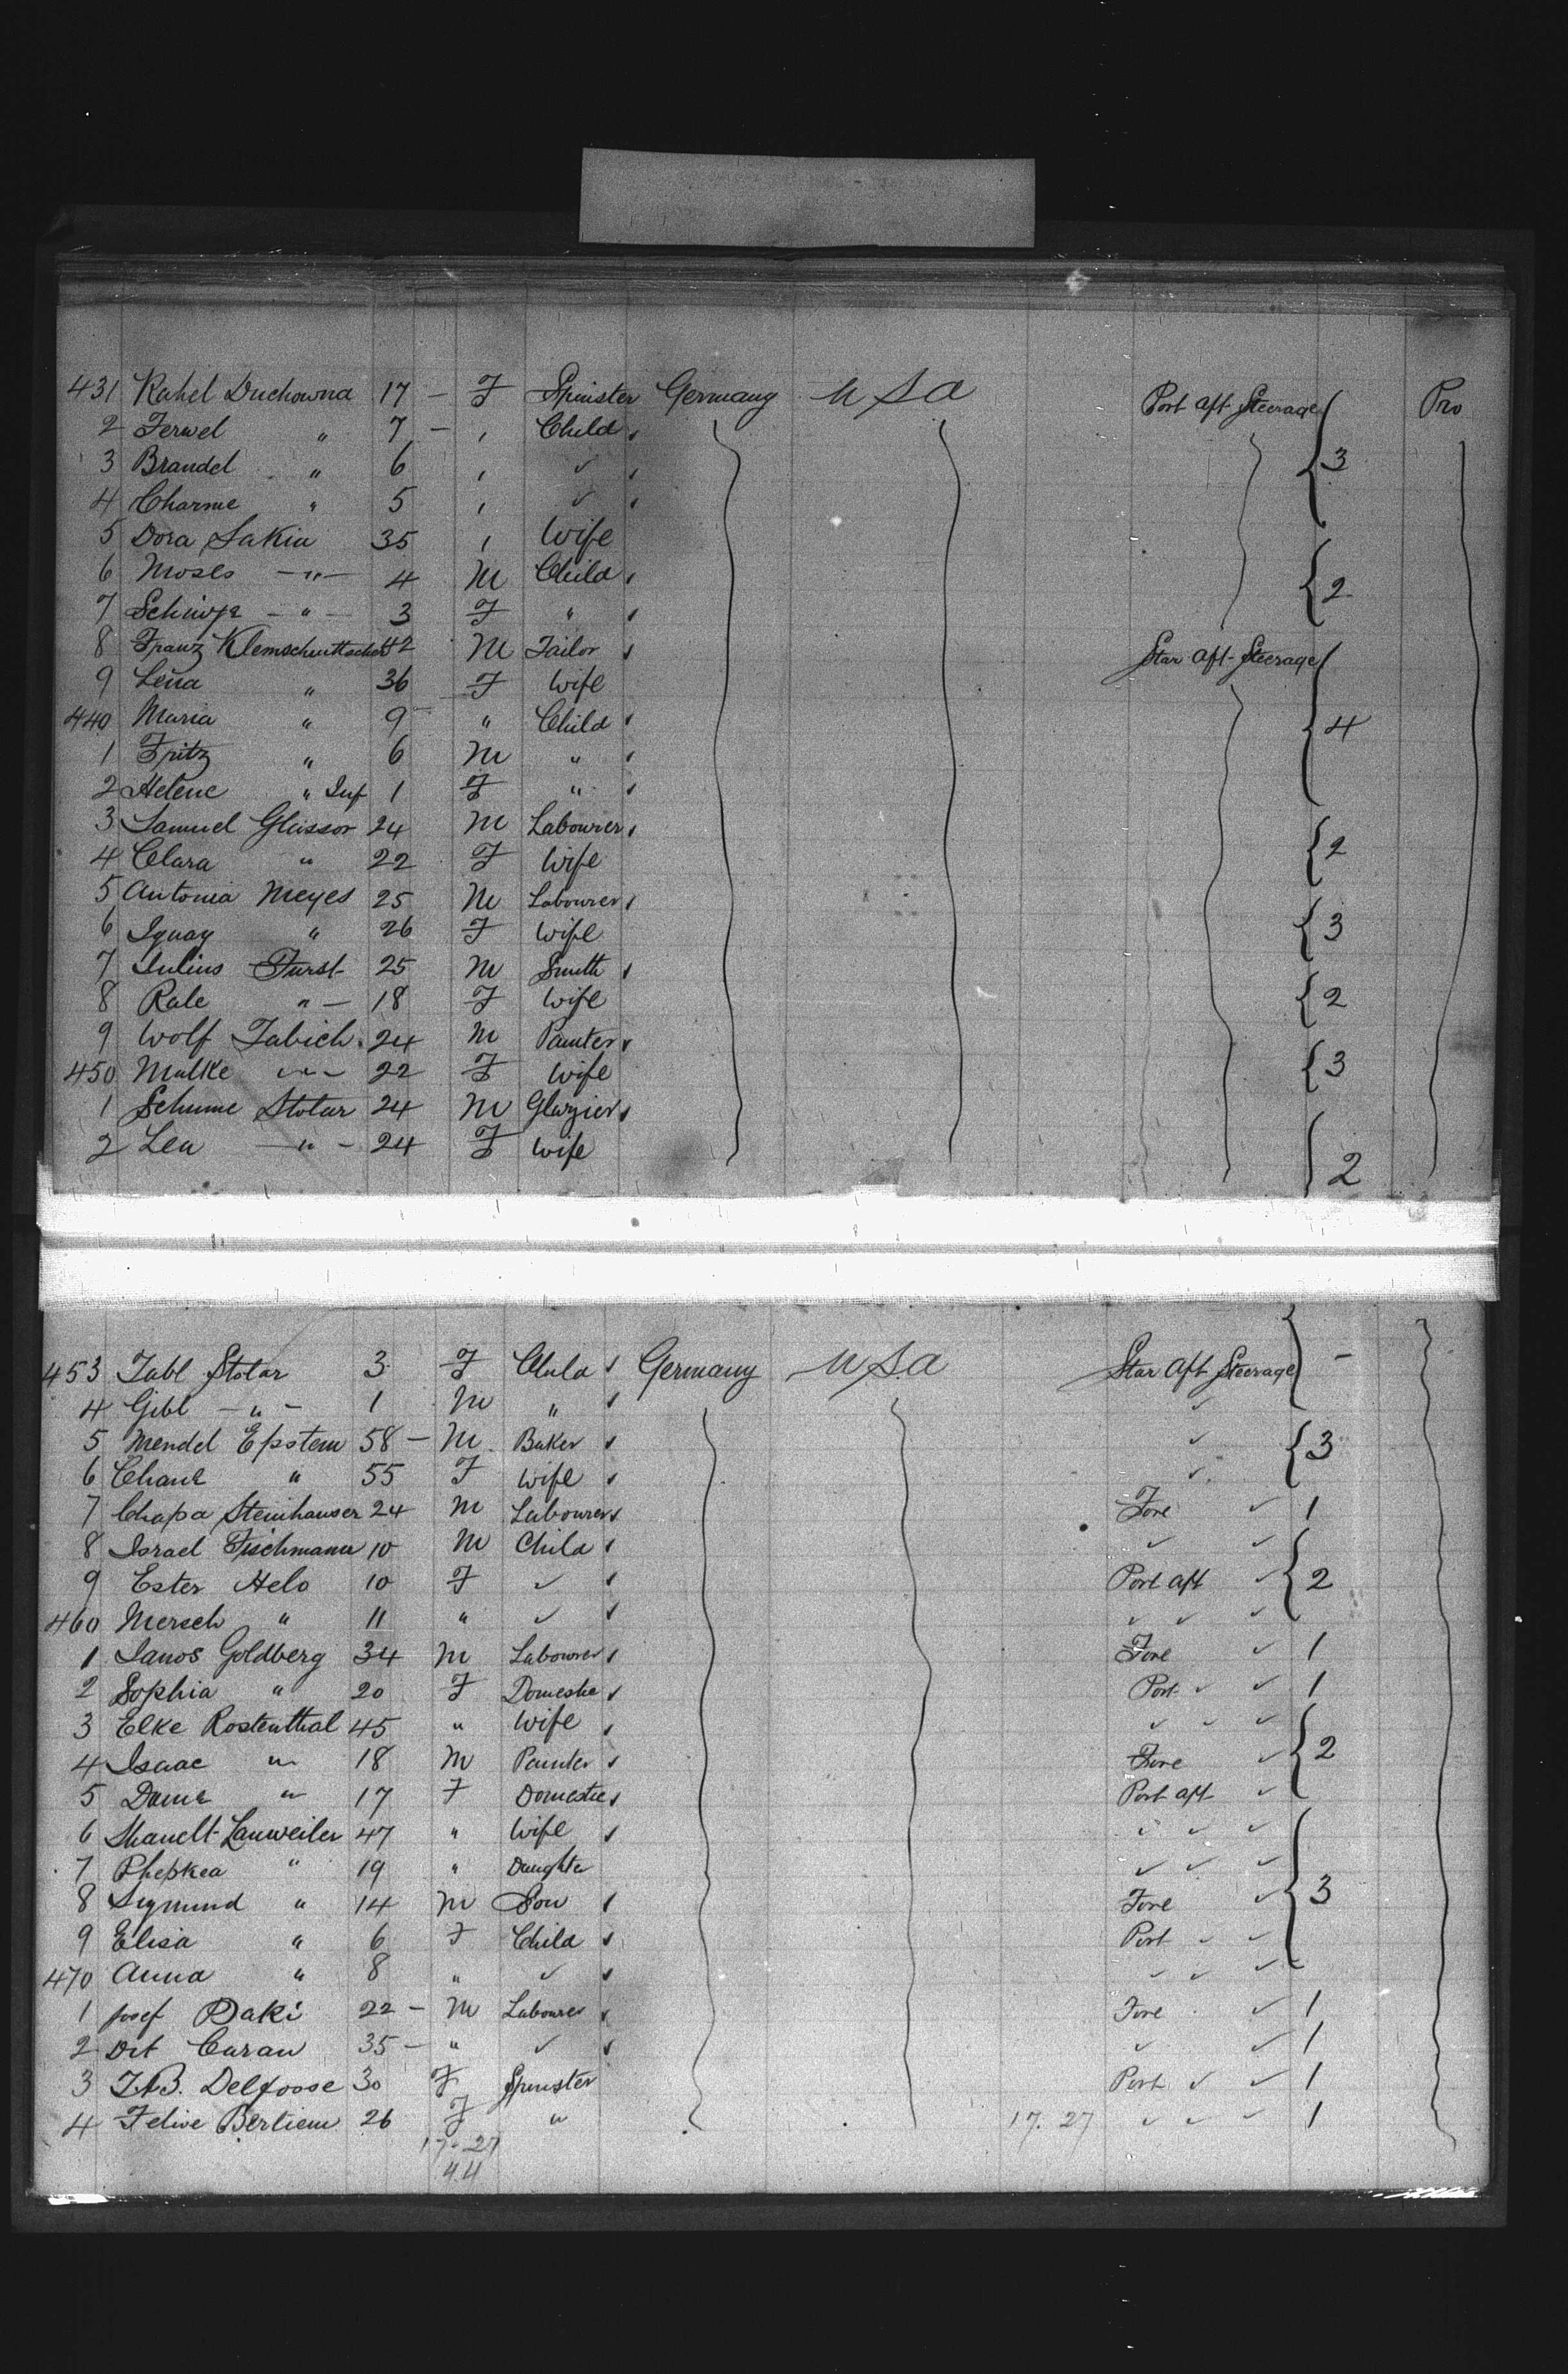 431 Rahel Duchowna 17 — F Spinster Germany U S A Port aft Steerage Pro
2 Ferwel " 7 — , Child
3 Brandel " 6 , ✓ 3
4 Charme " 5 , ✓
5 Dora Sakin 35 , Wife
6 Moses —"— 4 M Child 2
7 Scheinje —"— 3 F "
8 Franz Klemschuttschett 42 M Tailor Star aft Steerage
9 Lena " 36 F Wife
440 Maria " 9 " Child 4
1 Fritz " 6 M "
2 Helene " Inf 1 F "
3 Samuel Glassor 24 M Labourer 2
4 Clara " 22 F Wife
5 Antonia Meyes 25 M Labourer 3
6 Ignay " 26 F Wife
7 Julius Furst 25 M Smith 2
8 Rale " — 18 F Wife
9 Wolf Tabich 24 M Painter 3
450 Malke " 22 F Wife
1 Schume Stolar 24 M Glazier
2 Lea —"— 24 F Wife 2
453 Tabl Stolar 3 F Child Germany U S A Star aft Steerage —
4 Gibl —"— 1 M " ✓
5 Mendel Epstein 58 — M Baker ✓ 3
6 Chane " 55 F Wife ✓
7 Chapa Steinhauser 24 M Labourer Fore ✓ 1
8 Israel Fischmann 10 M Child ✓ ✓
9 Ester Helo 10 F ✓ Port aft ✓ 2
460 Mersch " 11 " ✓ ✓ ✓ ✓
1 Janos Goldberg 34 M Labourer Fore ✓ 1
2 Sophia " 20 F Domestic Port ✓ ✓ 1
3 Elke Rostenthal 45 " Wife ✓ ✓ ✓
4 Isaac " 18 M Painter Fore ✓ 2
5 Dame " 17 F Domestic Port aft ✓
6 Lanweiler 47 " Wife ✓ ✓ ✓
7 Phepkea " 19 " Daughter ✓ ✓ ✓
8 Sigmund " 14 M Son Fore ✓ 3
9 Elisa " 6 F Child Port ✓ ✓
470 Anna " 8 " ✓ ✓ ✓ ✓
1 Josef Daki 22 — M Labourer Fore ✓ 1
2 Det Curan 35 — " ✓ ✓ ✓ 1
3 Delfosse 30 F Spinster Port ✓ ✓ 1
4 Felive Bertiem 26 F " 17. 27 ✓ ✓ ✓ 1
17 - 27
44